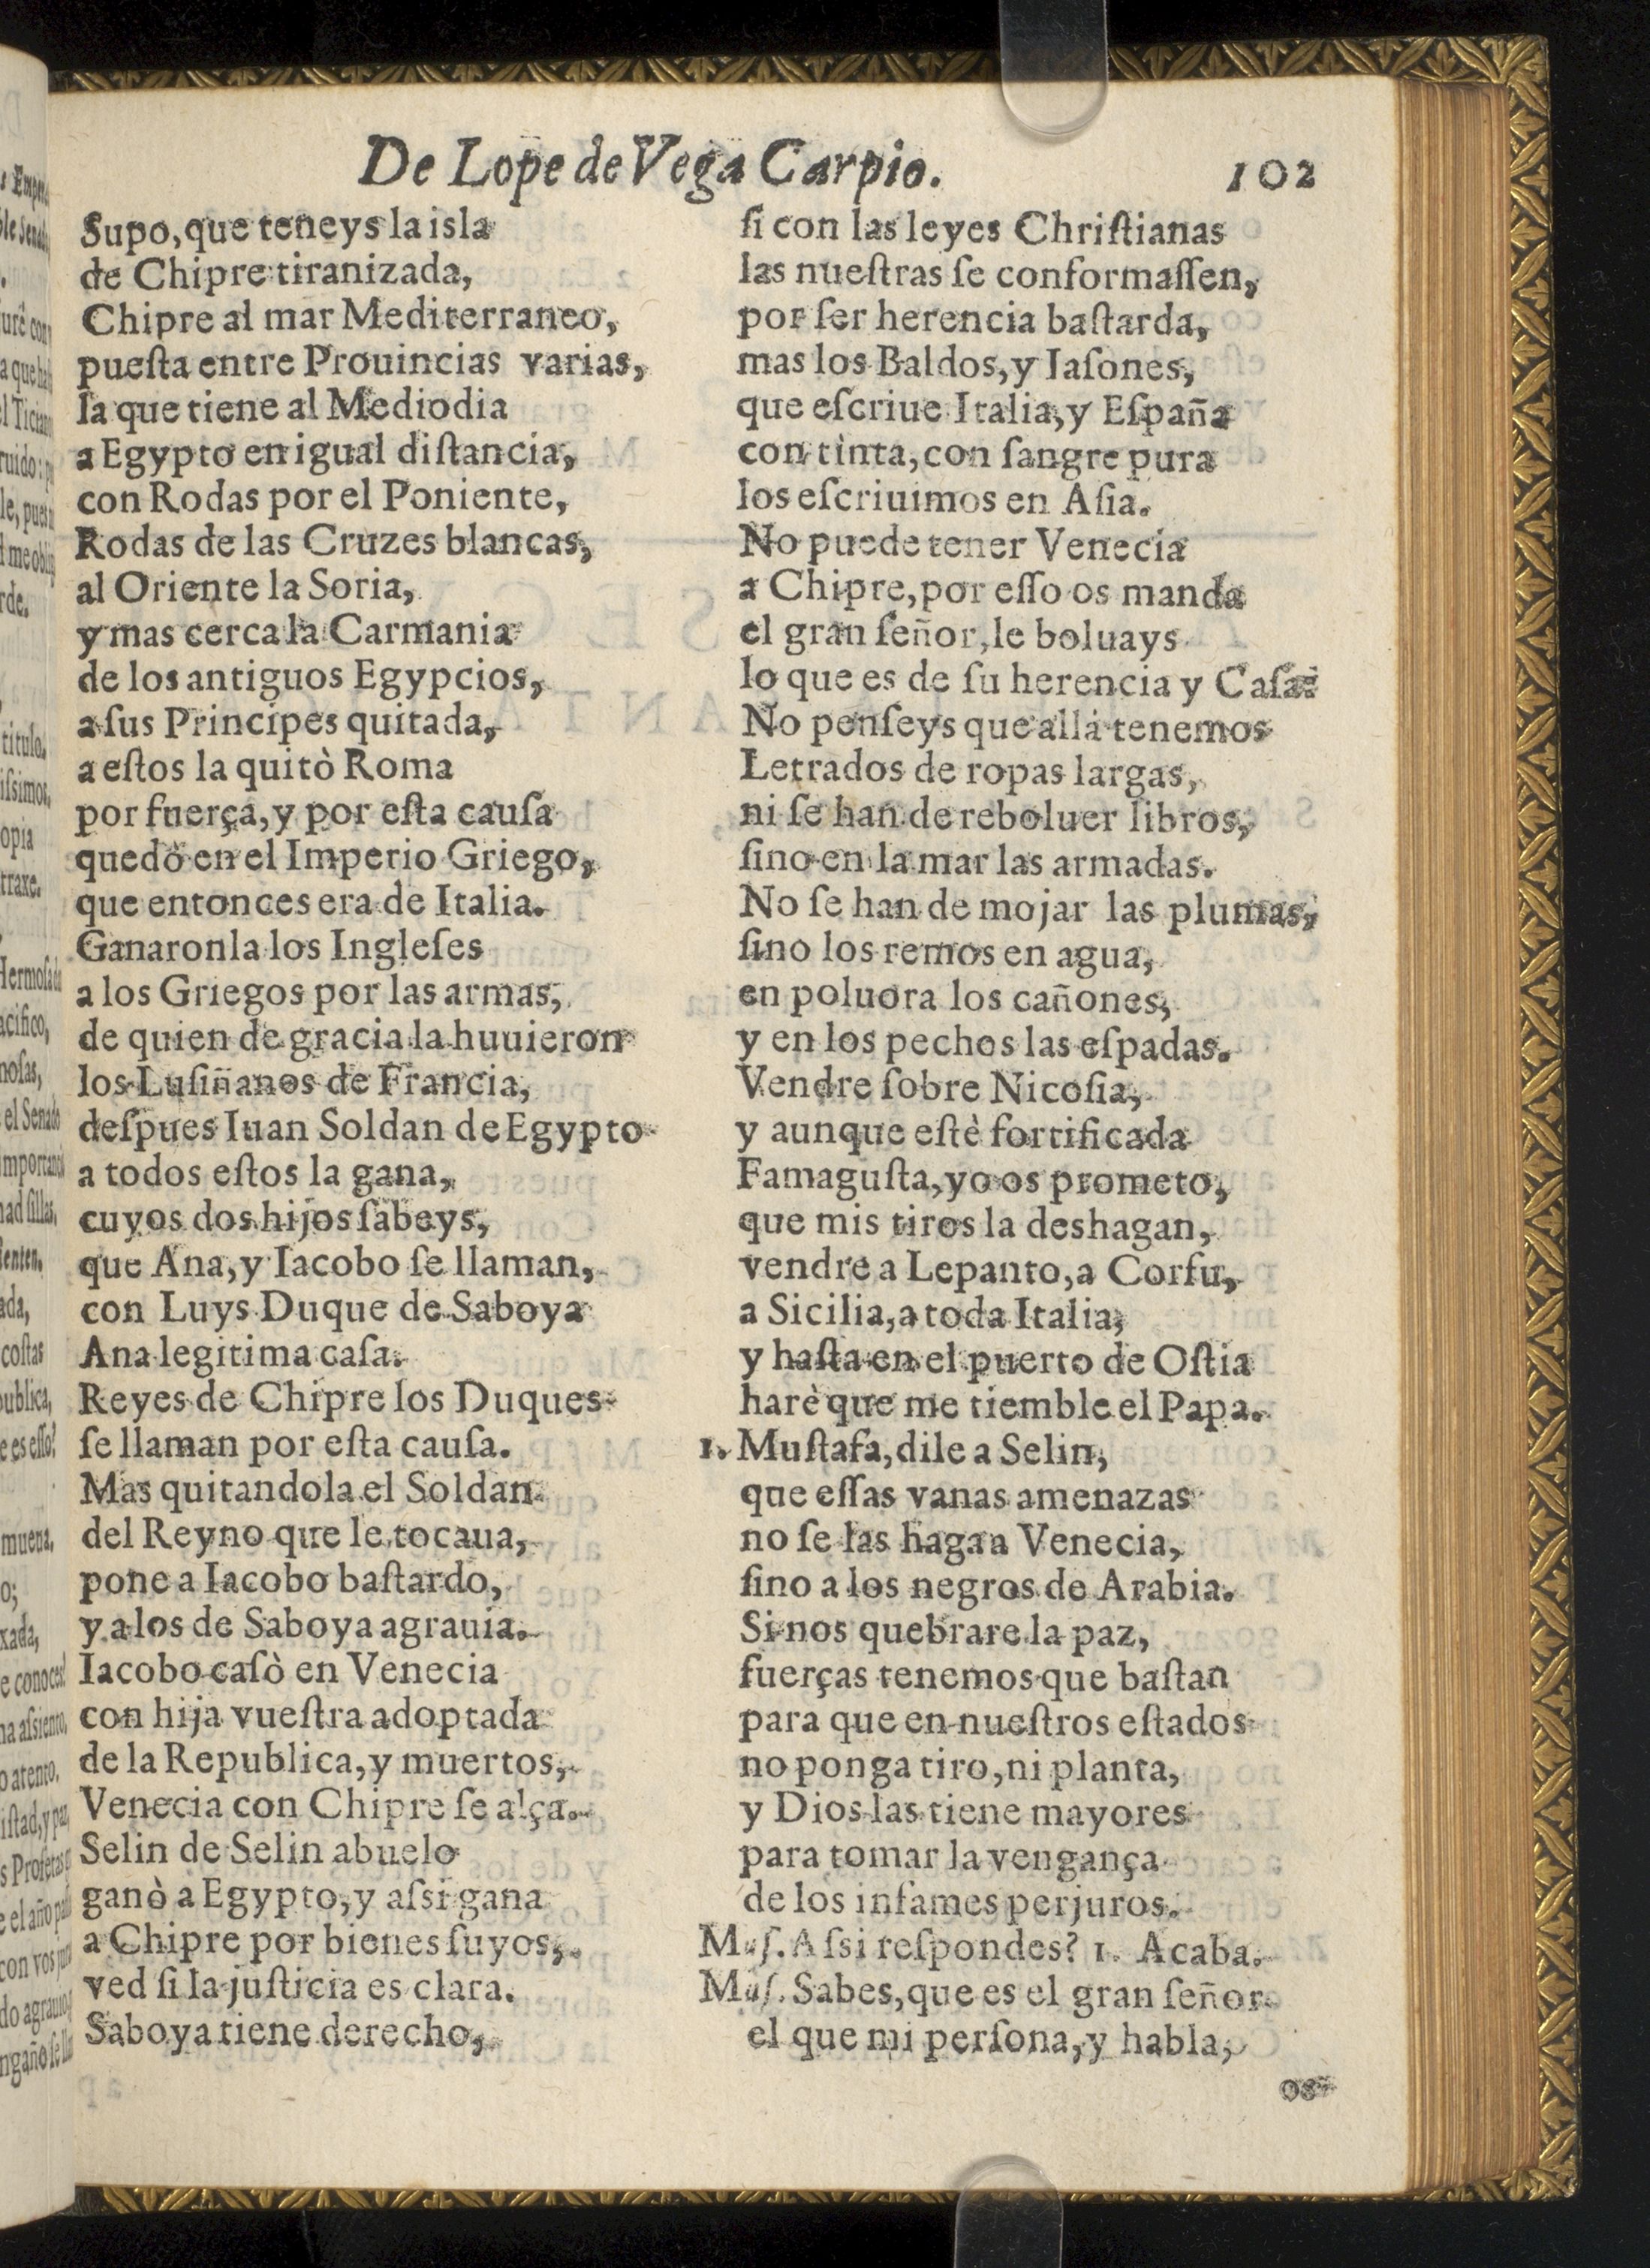 De Lope de Vega Carpio.
102
Supo, que teneys la isla
de Chipre tiranizada,
Chipre al mar Mediterraneo,
puesta entre Prouincias varias,
la que tiene al Mediodia
a Egypto en igual distancia,
con Rodas por el Poniente,
Rodas de las Cruzes blancas,
al Oriente la Soria,
y mas cerca la Carmania
de los antiguos Egypcios,
a sus Principes quitada,
a estos la quitò Roma
por fuerça, y por esta causa
quedò en el Imperio Griego,
que entonces era de Italia.
Ganaronla los Ingleses
a los Griegos por las armas,
de quien de gracia la huuieron
los Lusiñanos de Francia,
despues Iuan Soldan de Egypto
a todos estos la gana,
cuyos dos hijos sabeys,
que Ana, y Iacobo se llaman,
con Luys Duque de Saboya
Ana legitima casa.
Reyes de Chipre los Duques
se llaman por esta causa.
Mas quitandola el Soldan
del Reyno que le tocaua,
pone a Iacobo bastardo,
y a los de Saboya agrauia.
Iacobo casò en Venecia
con hija vuestra adoptada
de la Republica, y muertos,
Venecia con Chipre se alça.
Selin de Selin abuelo
ganò a Egypto, y assi gana
a Chipre por bienes suyos,
ved si la justicia es clara.
Saboya tiene derecho,
si con las leyes Christianas
las nuestras se conformassen,
por ser herencia bastarda,
mas los Baldos, y Iasones,
que escriue Italia, y España
con tinta, con sangre pura
los escriuimos en Asia.
No puede tener Venecia
a Chipre, por esso os manda
el gran señor, le boluays
lo que es de su herencia y Casa:
No penseys que allà tenemos
Letrados de ropas largas,
ni se han de reboluer libros,
sino en la mar las armadas.
No se han de mojar las plumas,
sino los remos en agua,
en poluora los cañones,
y en los pechos las espadas.
Vendre sobre Nicosia,
y aunque estè fortificada
Famagusta, yo os prometo,
que mis tiros la deshagan,
vendre a Lepanto, a Corfu,
a Sicilia, a toda Italia,
y hasta en el puerto de Ostia
harè que me tiemble el Papa.
1. Mustafa, dile a Selin,
que essas vanas amenazas
no se las haga a Venecia,
sino a los negros de Arabia.
Si nos quebrare la paz,
fuerças tenemos que bastan
para que en nuestros estados
no ponga tiro, ni planta,
y Dios las tiene mayores
para tomar la vengança
de los infames perjuros.
Mus. Assi respondes? 1. Acaba.
Mus. Sabes, que es el gran señor
el que mi persona, y habla,
os